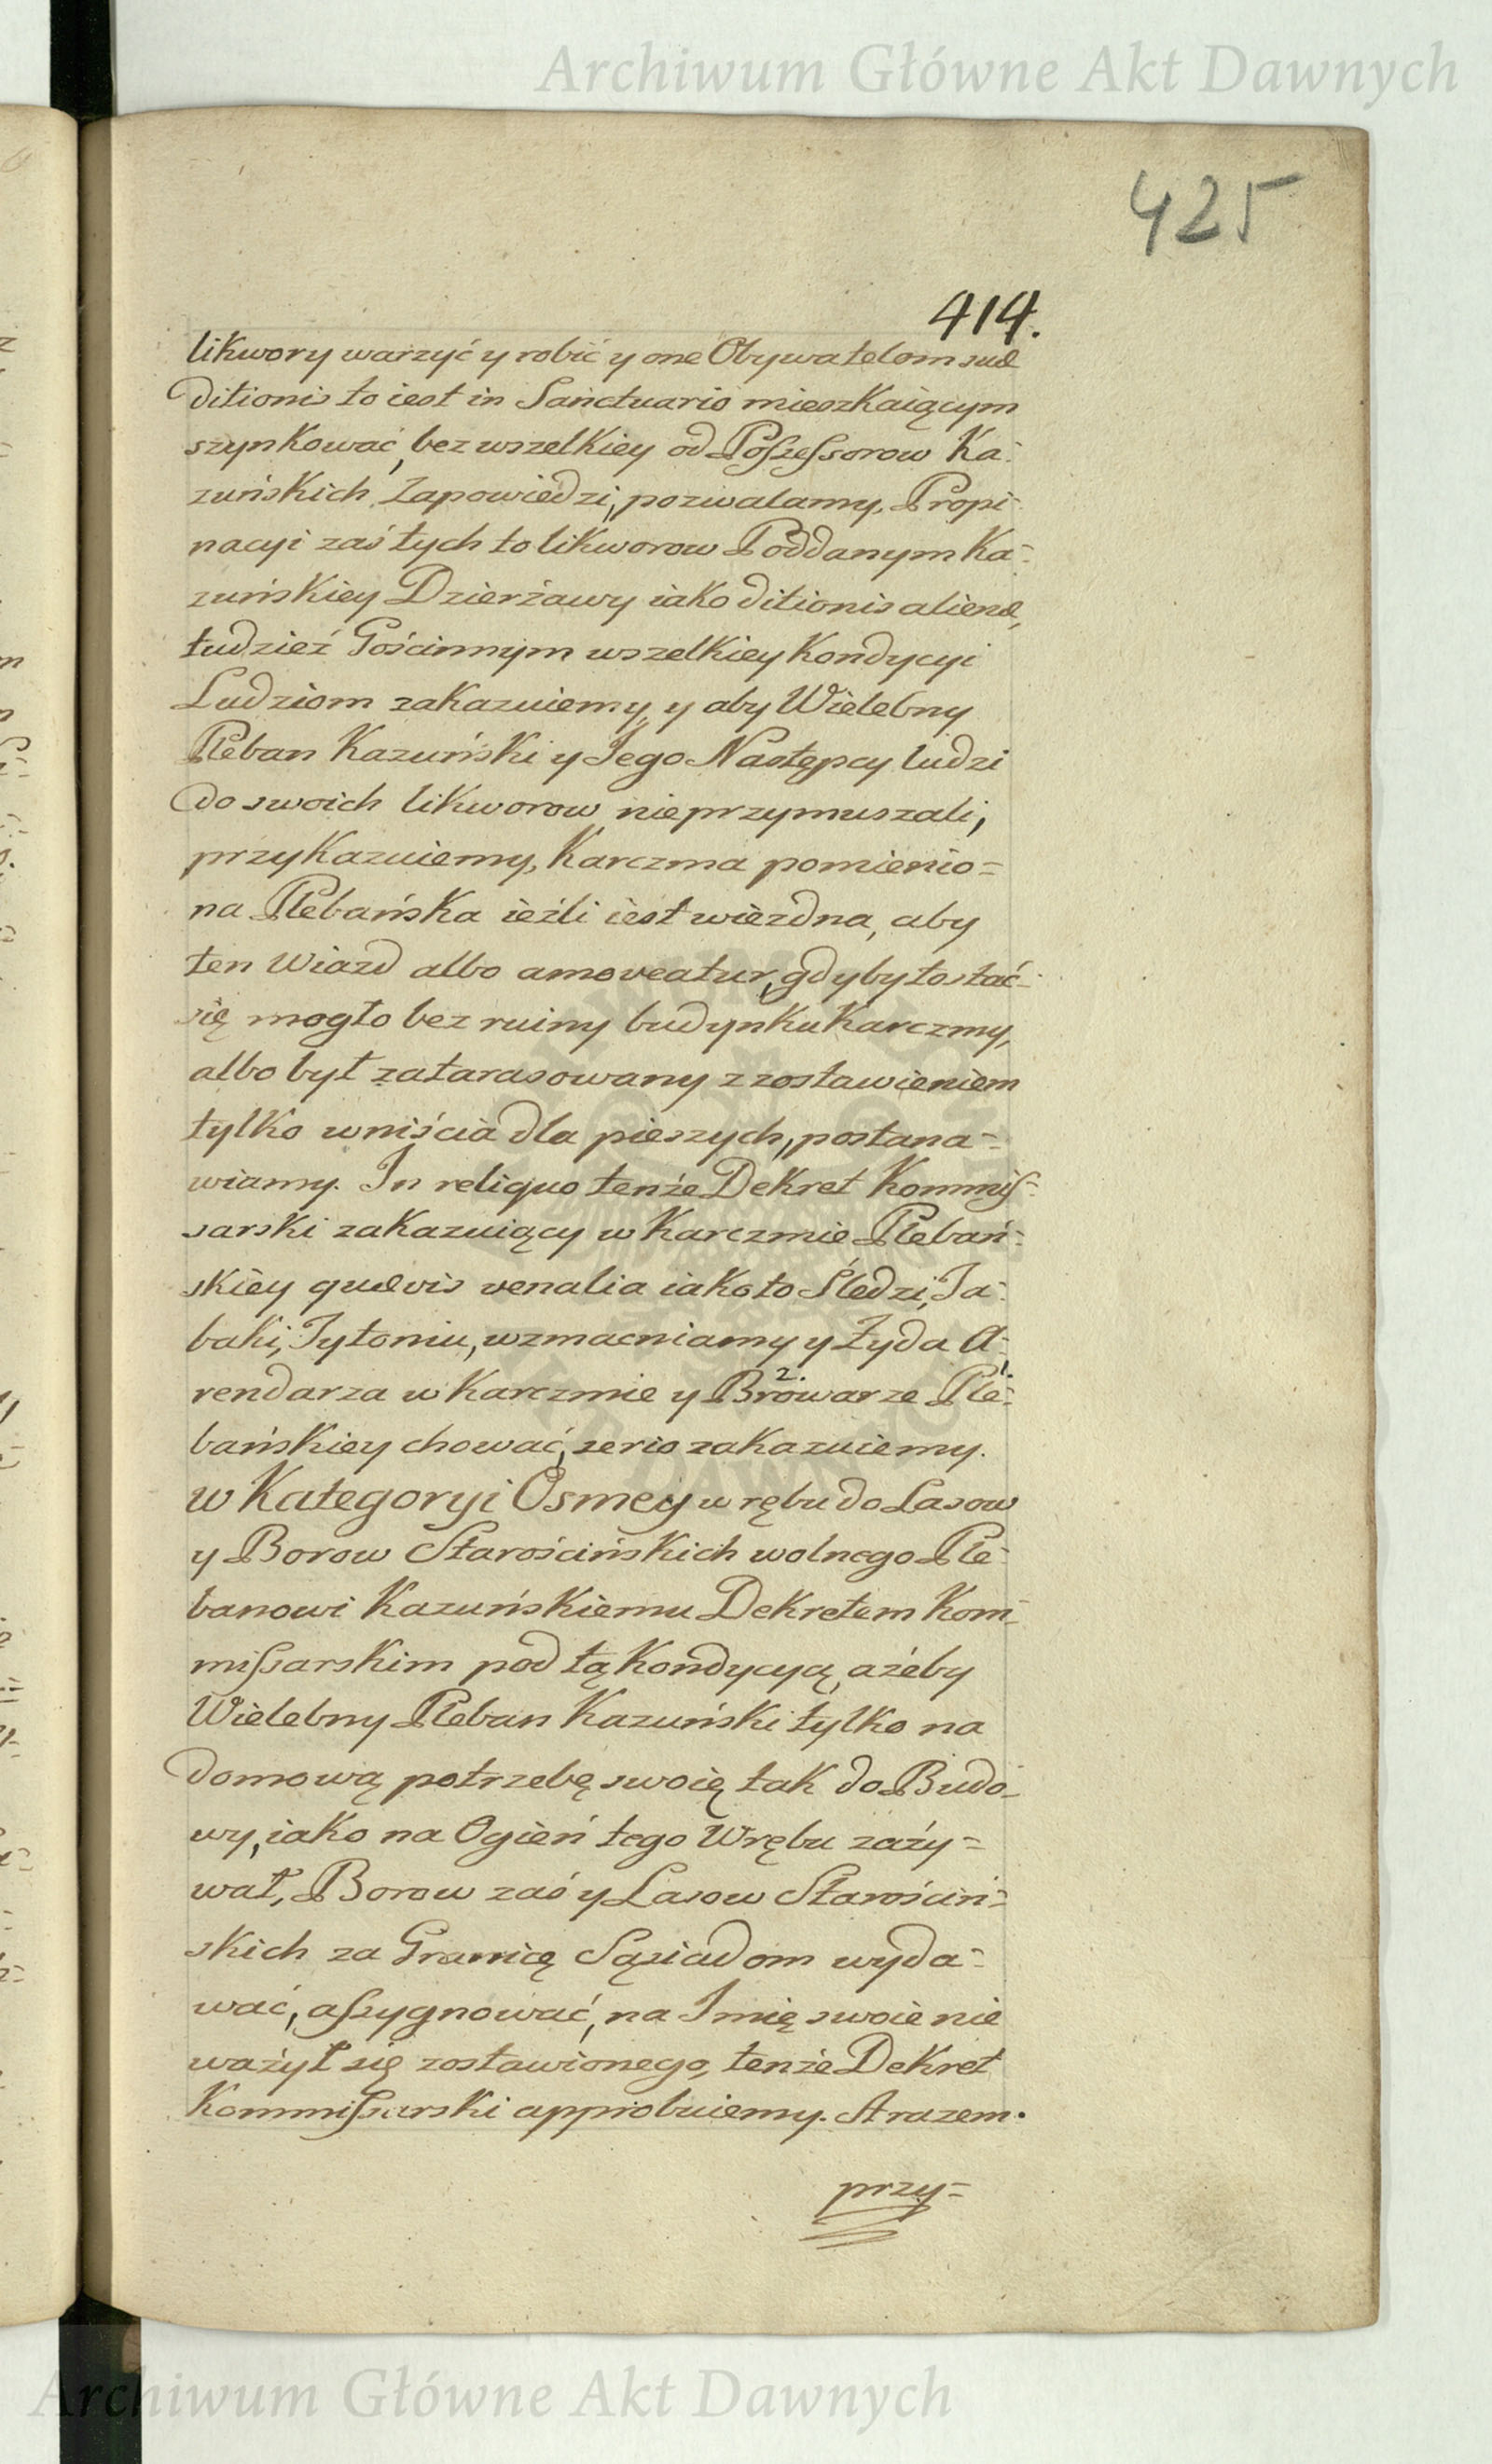 Archiwum Główne Akt Dawnych
425
414.
likwory warzyć y robić y one Obywatelom suæ
ditionis to iest in Sanctuario mieszkaiącym
szynkować, bez wszelkiey od Poſseſsorow Ka-
zuńskich Zapowiedzi, pozwalamy, Propi-
nacyi zaś tych to likworow Poddanym Ka-
zuńskiey Dzierżawy iako ditionis alienæ,
tudzież Gościnnym wszelkiey Kondycyi
Ludziom zakazuiemy, y aby Wielebny
Pleban Kazuński y Jego Następcy ludzi
do swoich likworow nieprzymuszali,
przykazuiemy, Karczma pomienio=
na Plebańska ieżli iest wiezdna, aby
ten Wiazd albo amoveatur, gdyby to stać
się mogło bez ruiny budynku Karczmy,
albo był zatarasowany z zostawieniem
tylko wniścia dla pieszych, postana=
wiamy. In reliquo tenże Dekret Kommiſ-
sarski zakazuiący w Karczmie Plebań-
skiey quævis venalia iako to Śledzi, Ta-
baki, Tytoniu, wzmacniamy y Żyda A-
rendarza w Karczmie y Browarze 2. Ple- 1.
bańskiey chować, serio zakazuiemy.
w Kategoryi Osmey wrębu do Lasow
y Borow Starościńskich wolnego Ple-
banowi Kazuńskiemu Dekretem Kom-
miſsarskim pod tą Kondycyą, ażeby
Wielebny Pleban Kazuński tylko na
domową potrzebę swoię tak do Budo-
wy, iako na Ogień tego Wrębu zaży=
wał, Borow zaś y Lasow Starościń=
skich za Granicę Sąsiadom wyda=
wać, aſsygnować, na Imię swoie nie
ważył się zostawionego, tenże Dekret
Kommiſsarski approbuiemy. A razem.
przy=
Archiwum Główne Akt Dawnych